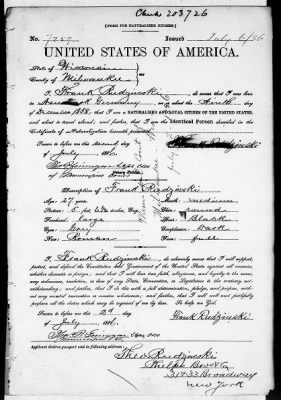 Check 203726
[FORM FOR NATURALIZED CITIZEN.]
No. Issued July 6/96
UNITED STATES OF AMERICA.
State of Wisconsin
County of Milwaukee
I, Frank Rudzinski, do swear that I was born
in Germany on or about the Ninth day
of December, 1868, that I am a NATURALIZED AND LOYAL CITIZEN OF THE UNITED STATES,
and about to travel abroad, and further, that I am the Identical Person described in the
Certificate of Naturalization herewith presented.
Sworn to before me this Second day
of July 189
Description of Frank Rudzinski
Age: 27 years. Mouth: medium
Stature: 5 feet, inches, Eng. Chin: round
Forehead: large Hair: Black
Eyes: Grey Complexion: Dark
Nose: Roman Face: full
I, Frank Rudzinski, do solemnly swear that I will support,
protect, and defend the Constitution and Government of the United States against all enemies,
whether domestic or foreign; and that I will bear true faith, allegiance, and loyalty to the same,
any ordinance, resolution, or law of any State, Convention, or Legislature to the contrary not-
withstanding; and further, that I do this with a full determination, pledge, and purpose, with-
out any mental reservation or evasion whatsoever; and further, that I will well and faithfully
perform all the duties which may be required of me by law. So help me God.
Sworn to before me this 2d day
of July 189 Frank Rudzinski
Applicant desires passport sent to following address:
Theo Rudzinski
Phelps Bros & Co
31 & 33 Broadway
New York